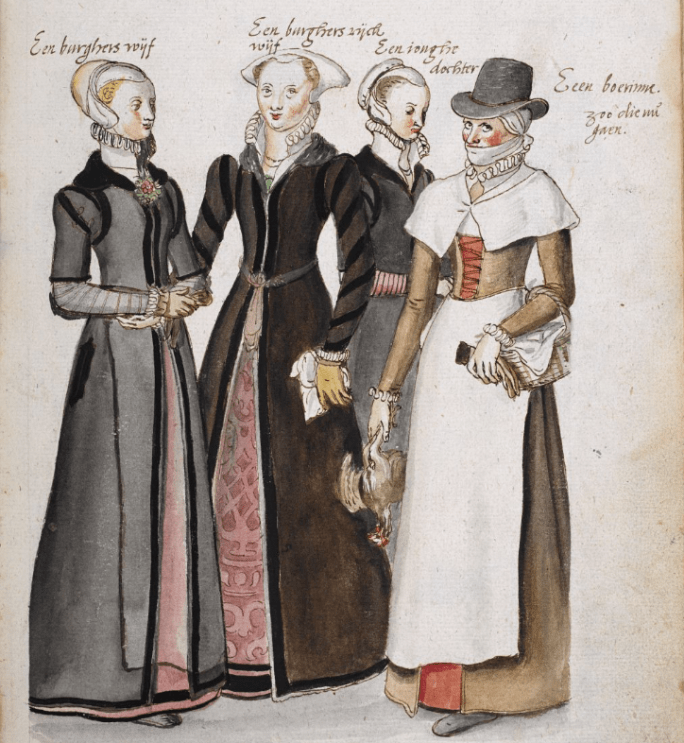 Een burghers wijf
Een burghers rijck
wijf
Een jonghe
dochter
Eeen boerinne.
zoo die nu
gaen.